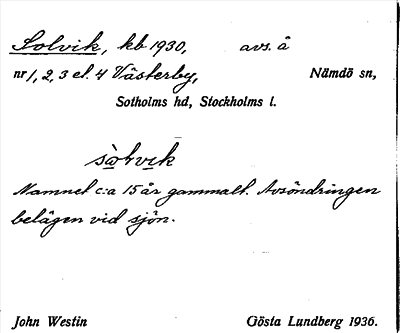 Solvik, kb 1930, avs. å
nr 1, 2, 3 el. 4 Västerby, Nämdö sn,
Sotholms hd, Stockholms l.
sòlvik
Namnet c:a 15 år gammalt. Avsöndringen
belägen vid sjön.
John Westin Gösta Lundberg 1936.